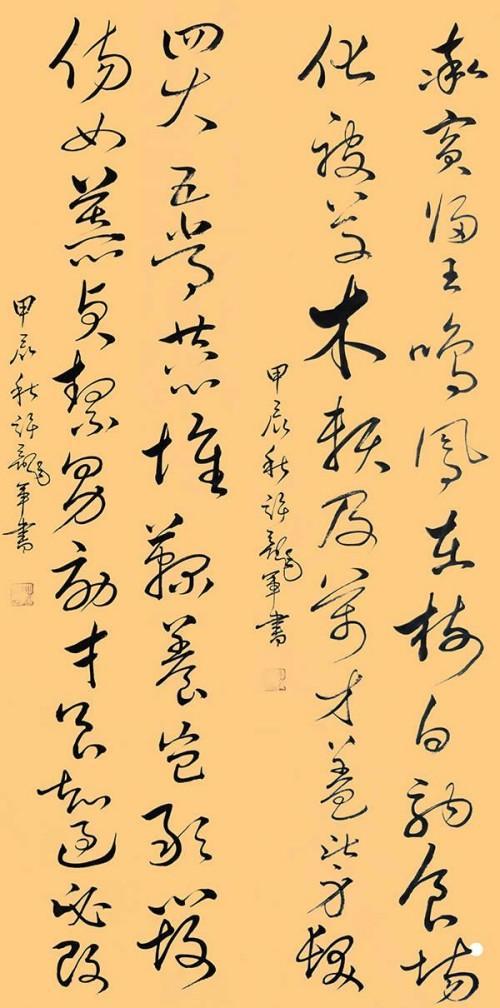 率賓歸王鳴鳳在樹白駒食場
化被草木賴及萬方蓋此身髮
甲辰秋許軍書
四大五常恭惟鞠養豈敢毀
傷女慕貞絜男效才良知過必改
甲辰秋許軍書